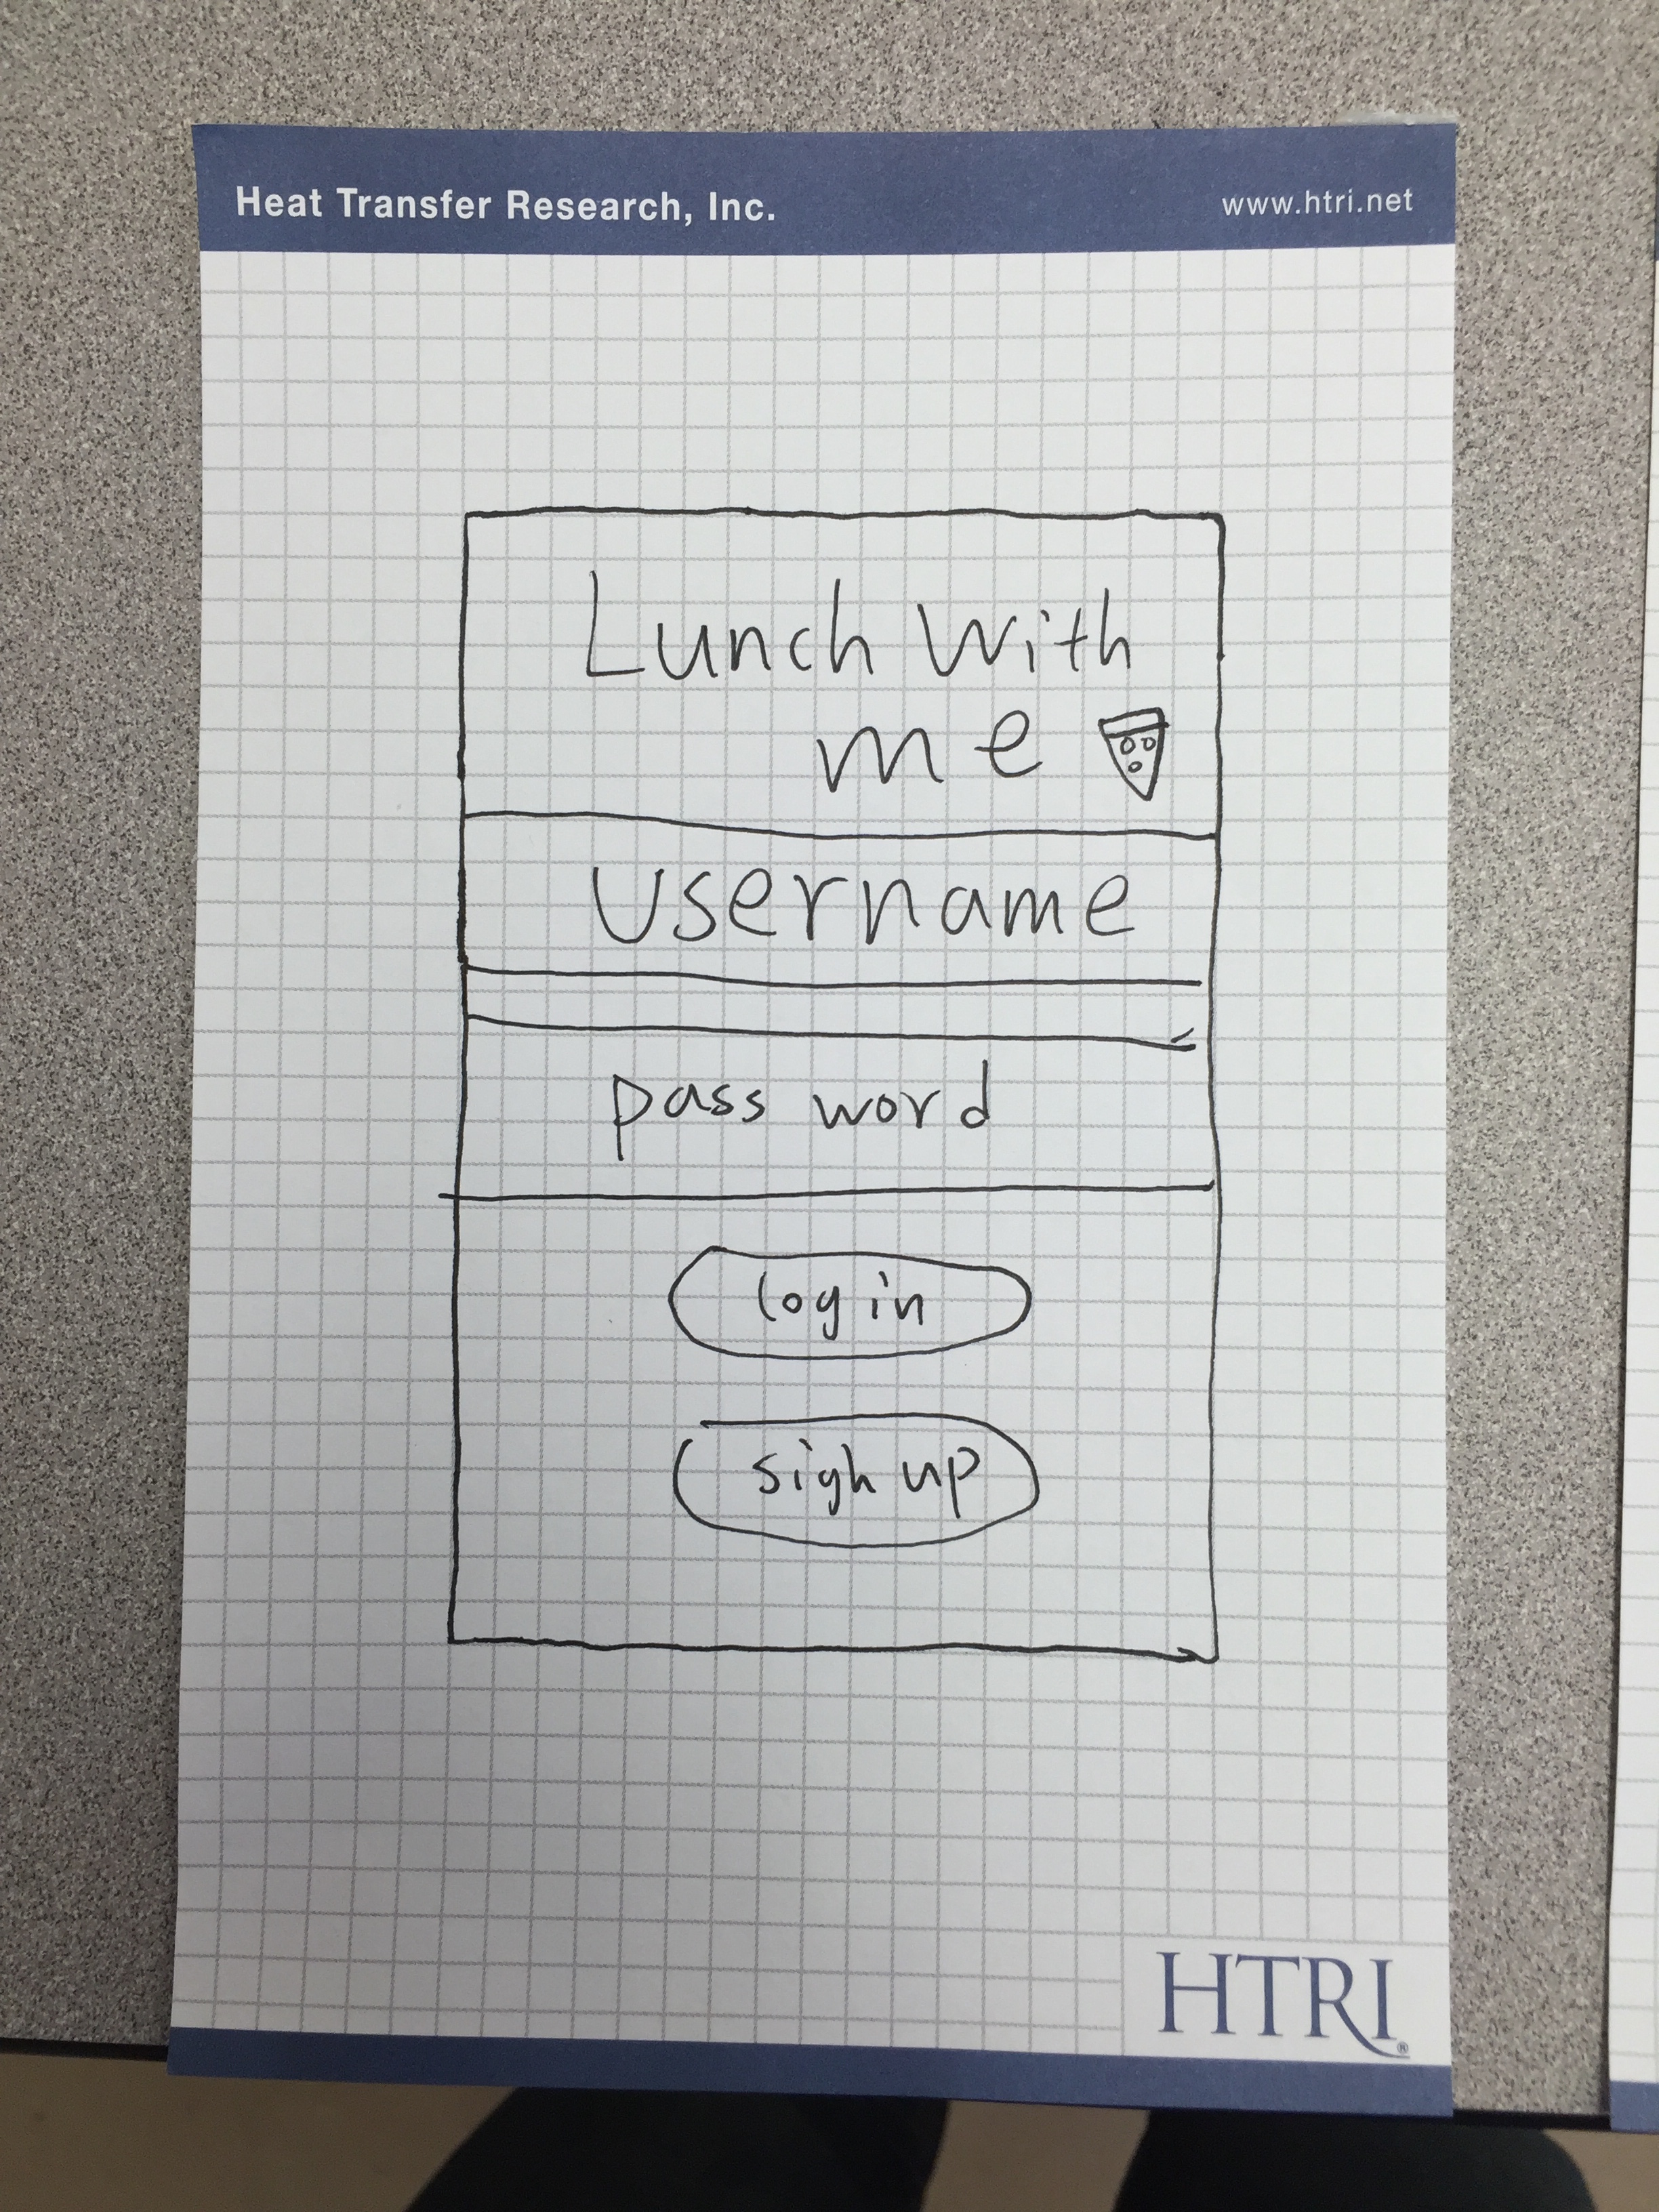 Heat Transfer Research, Inc. www.htri.net
Lunch with
me
Username
pass word
log in
sigh up
HTRI®